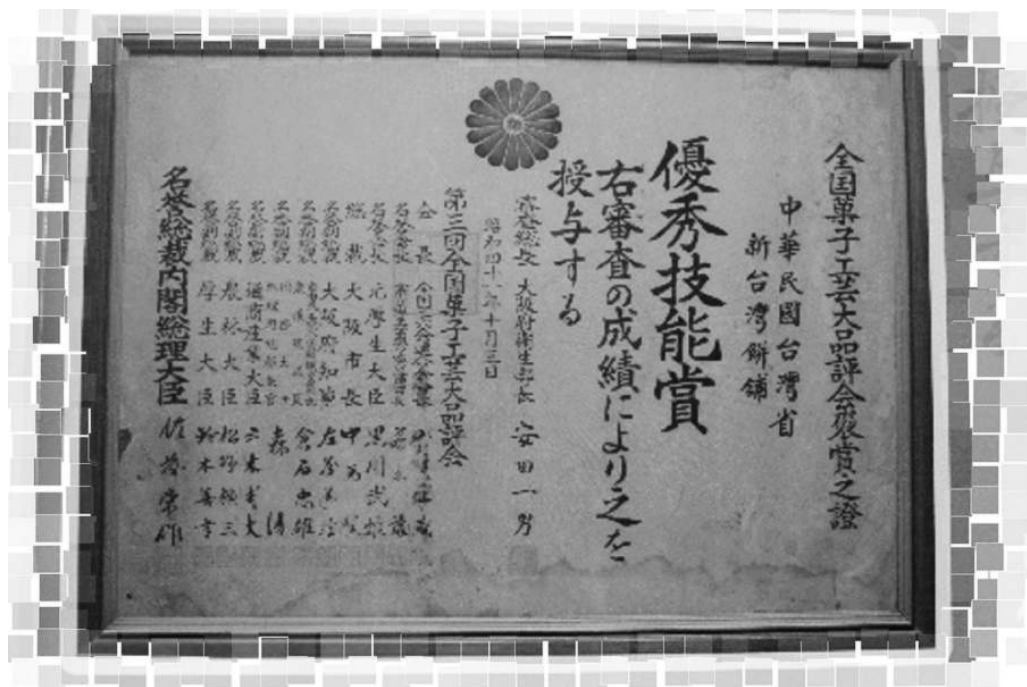 全国菓子工芸大品評会褒賞之證
中華民國台灣省
新台灣餅舖
優秀技能賞
右審査の成績により之を
授与する
審査総長 大阪府衛生部長 安田一男
昭和四十一年十月三日
第三回全国菓子工芸大品評会
会長
名誉会長
名誉会長 元厚生大臣 黒川武雄
総裁 大阪市長 中馬馨
名誉副総裁 大阪府知事 左藤義詮
名誉副総裁 倉石忠雄
名誉副総裁 森清
名誉副総裁 通商産業大臣 三木武夫
名誉副総裁 農林大臣 松野頼三
名誉副総裁 厚生大臣 鈴木善幸
名誉総裁内閣総理大臣 佐藤栄作